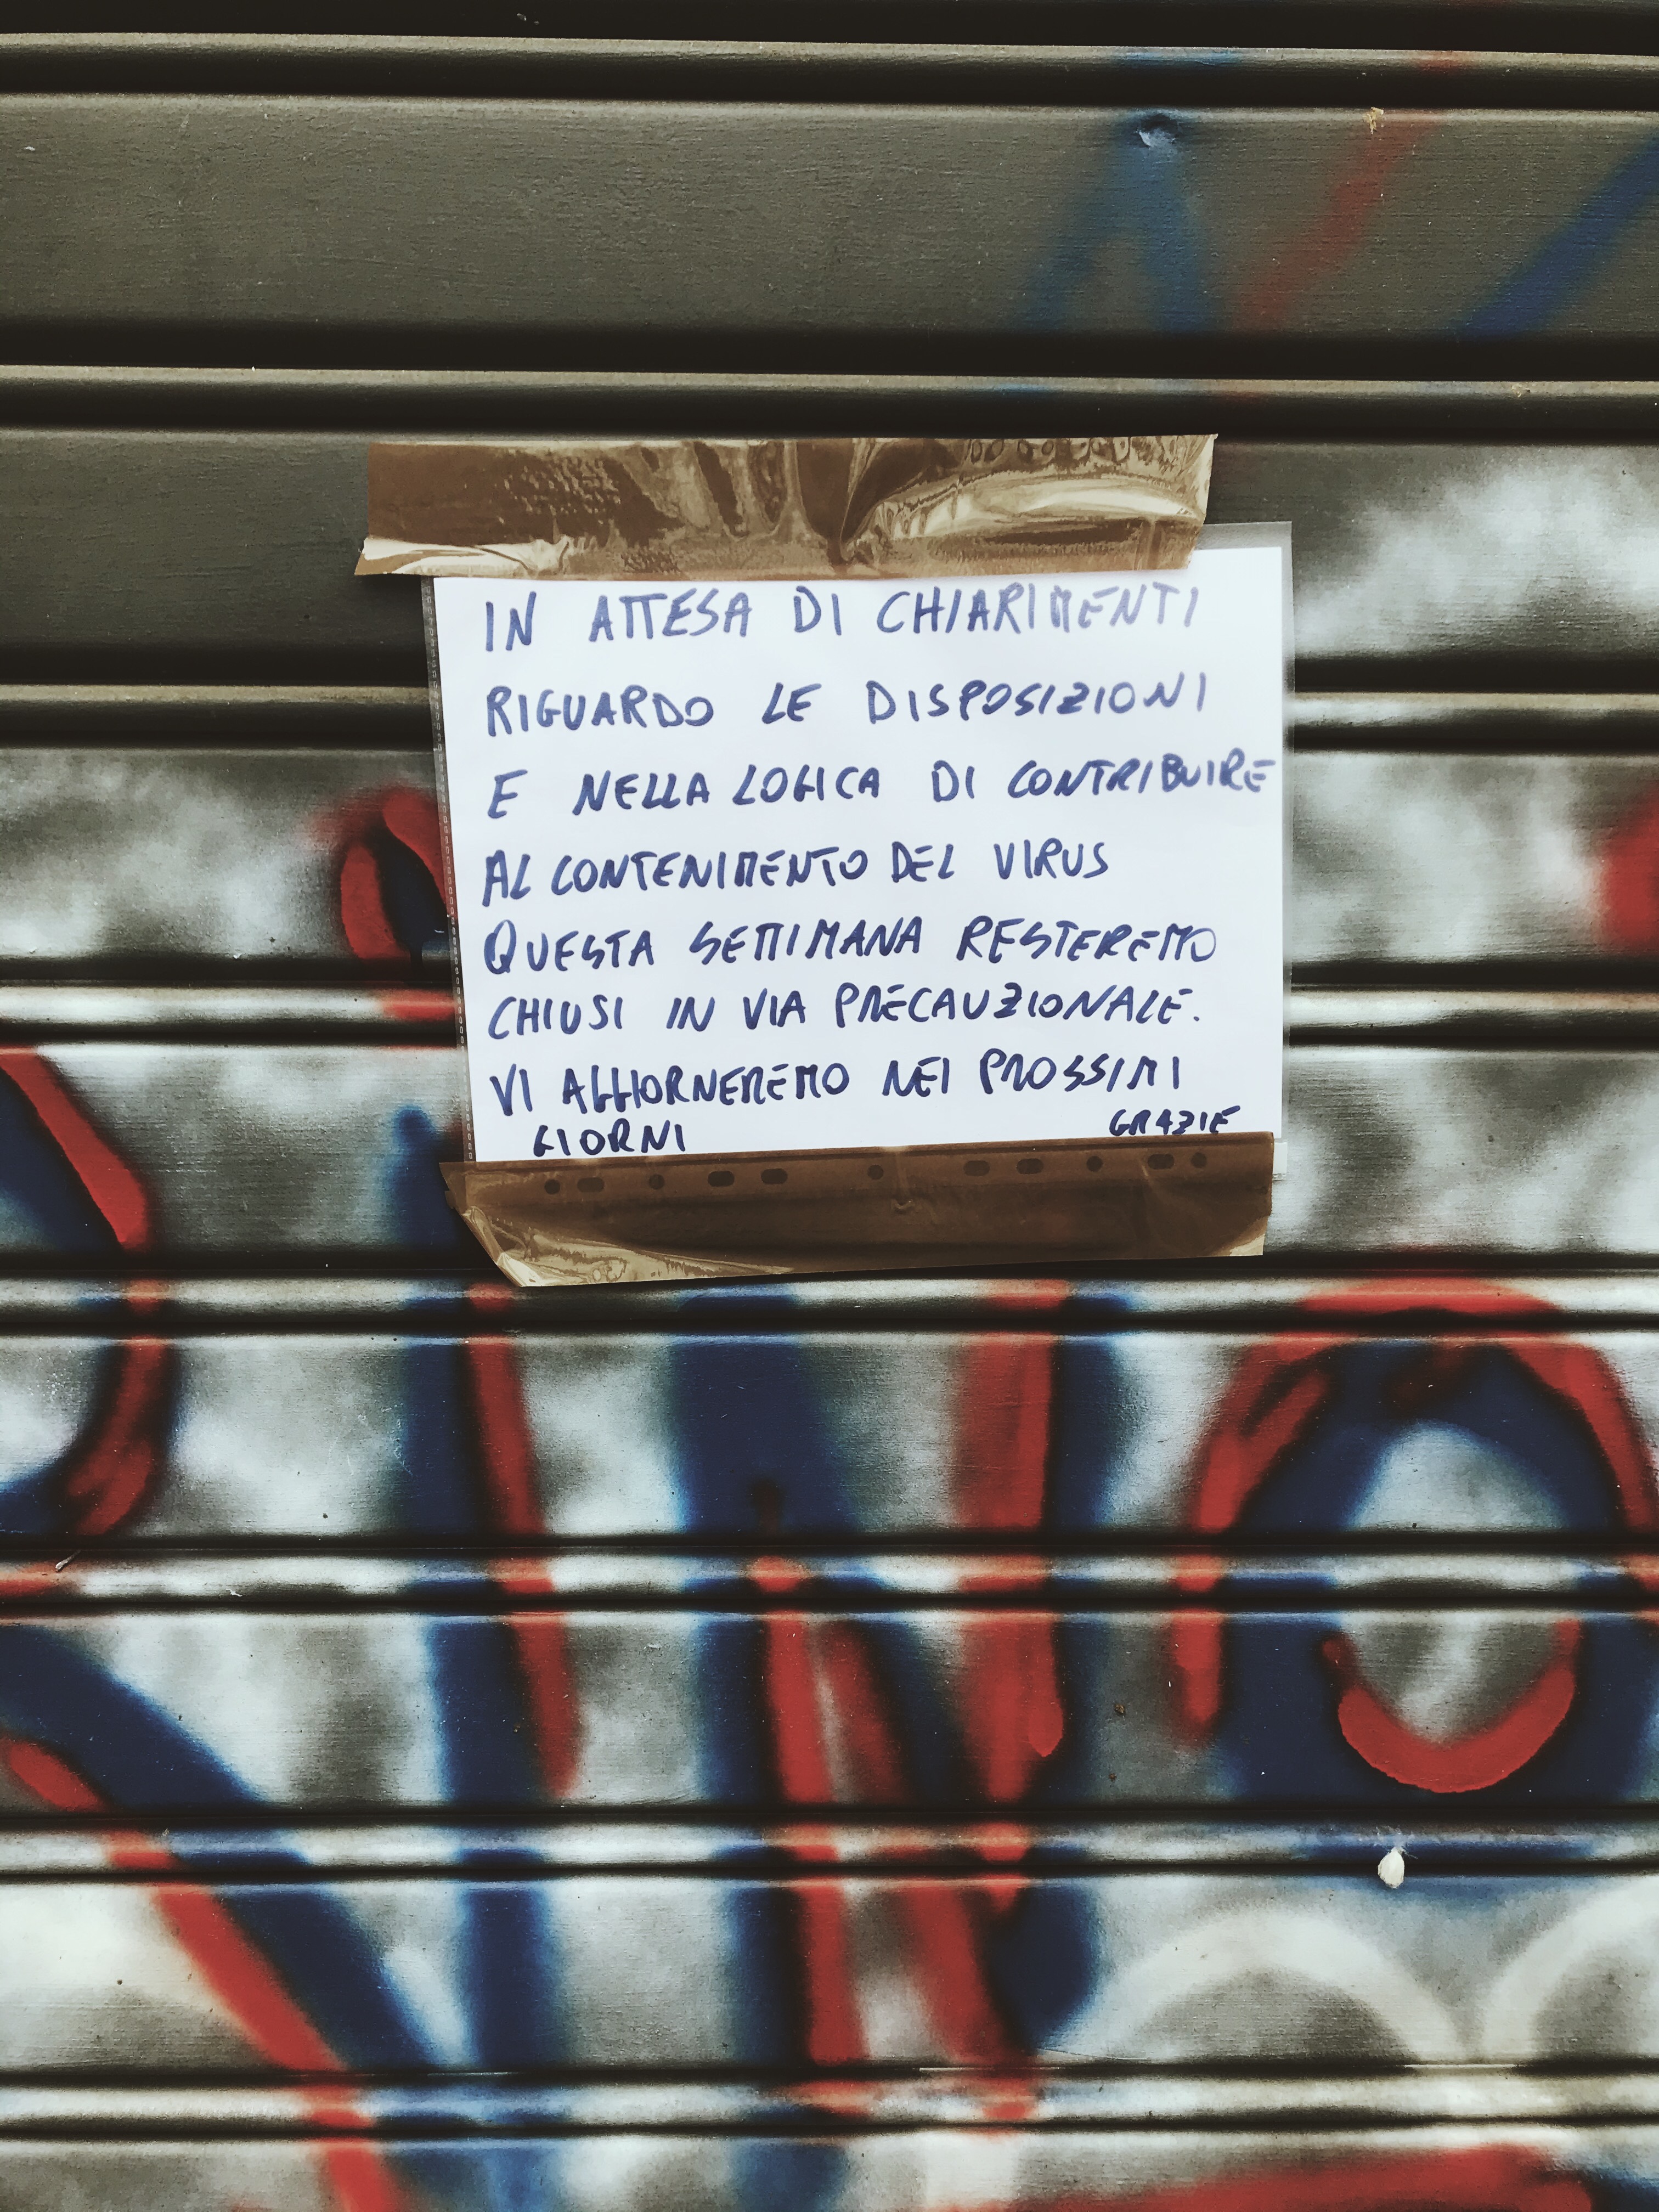 IN ATTESA DI CHIARIMENTI
RIGUARDO LE DISPOSIZIONI
E NELLA LOGICA DI CONTRIBUIRE
AL CONTENIMENTO DEL VIRUS
QUESTA SETTIMANA RESTEREMO
CHIUSI IN VIA PRECAUZIONALE.
VI AGGIORNEREMO NEI PROSSIMI
GIORNI GRAZIE